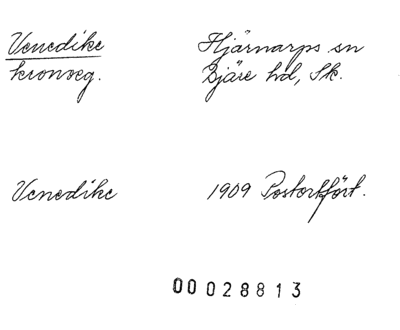 Venedike Hjärnarps sn
kronoeg. Bjäre hd, Sk.
Venedike 1909 Postortfört.
00028813